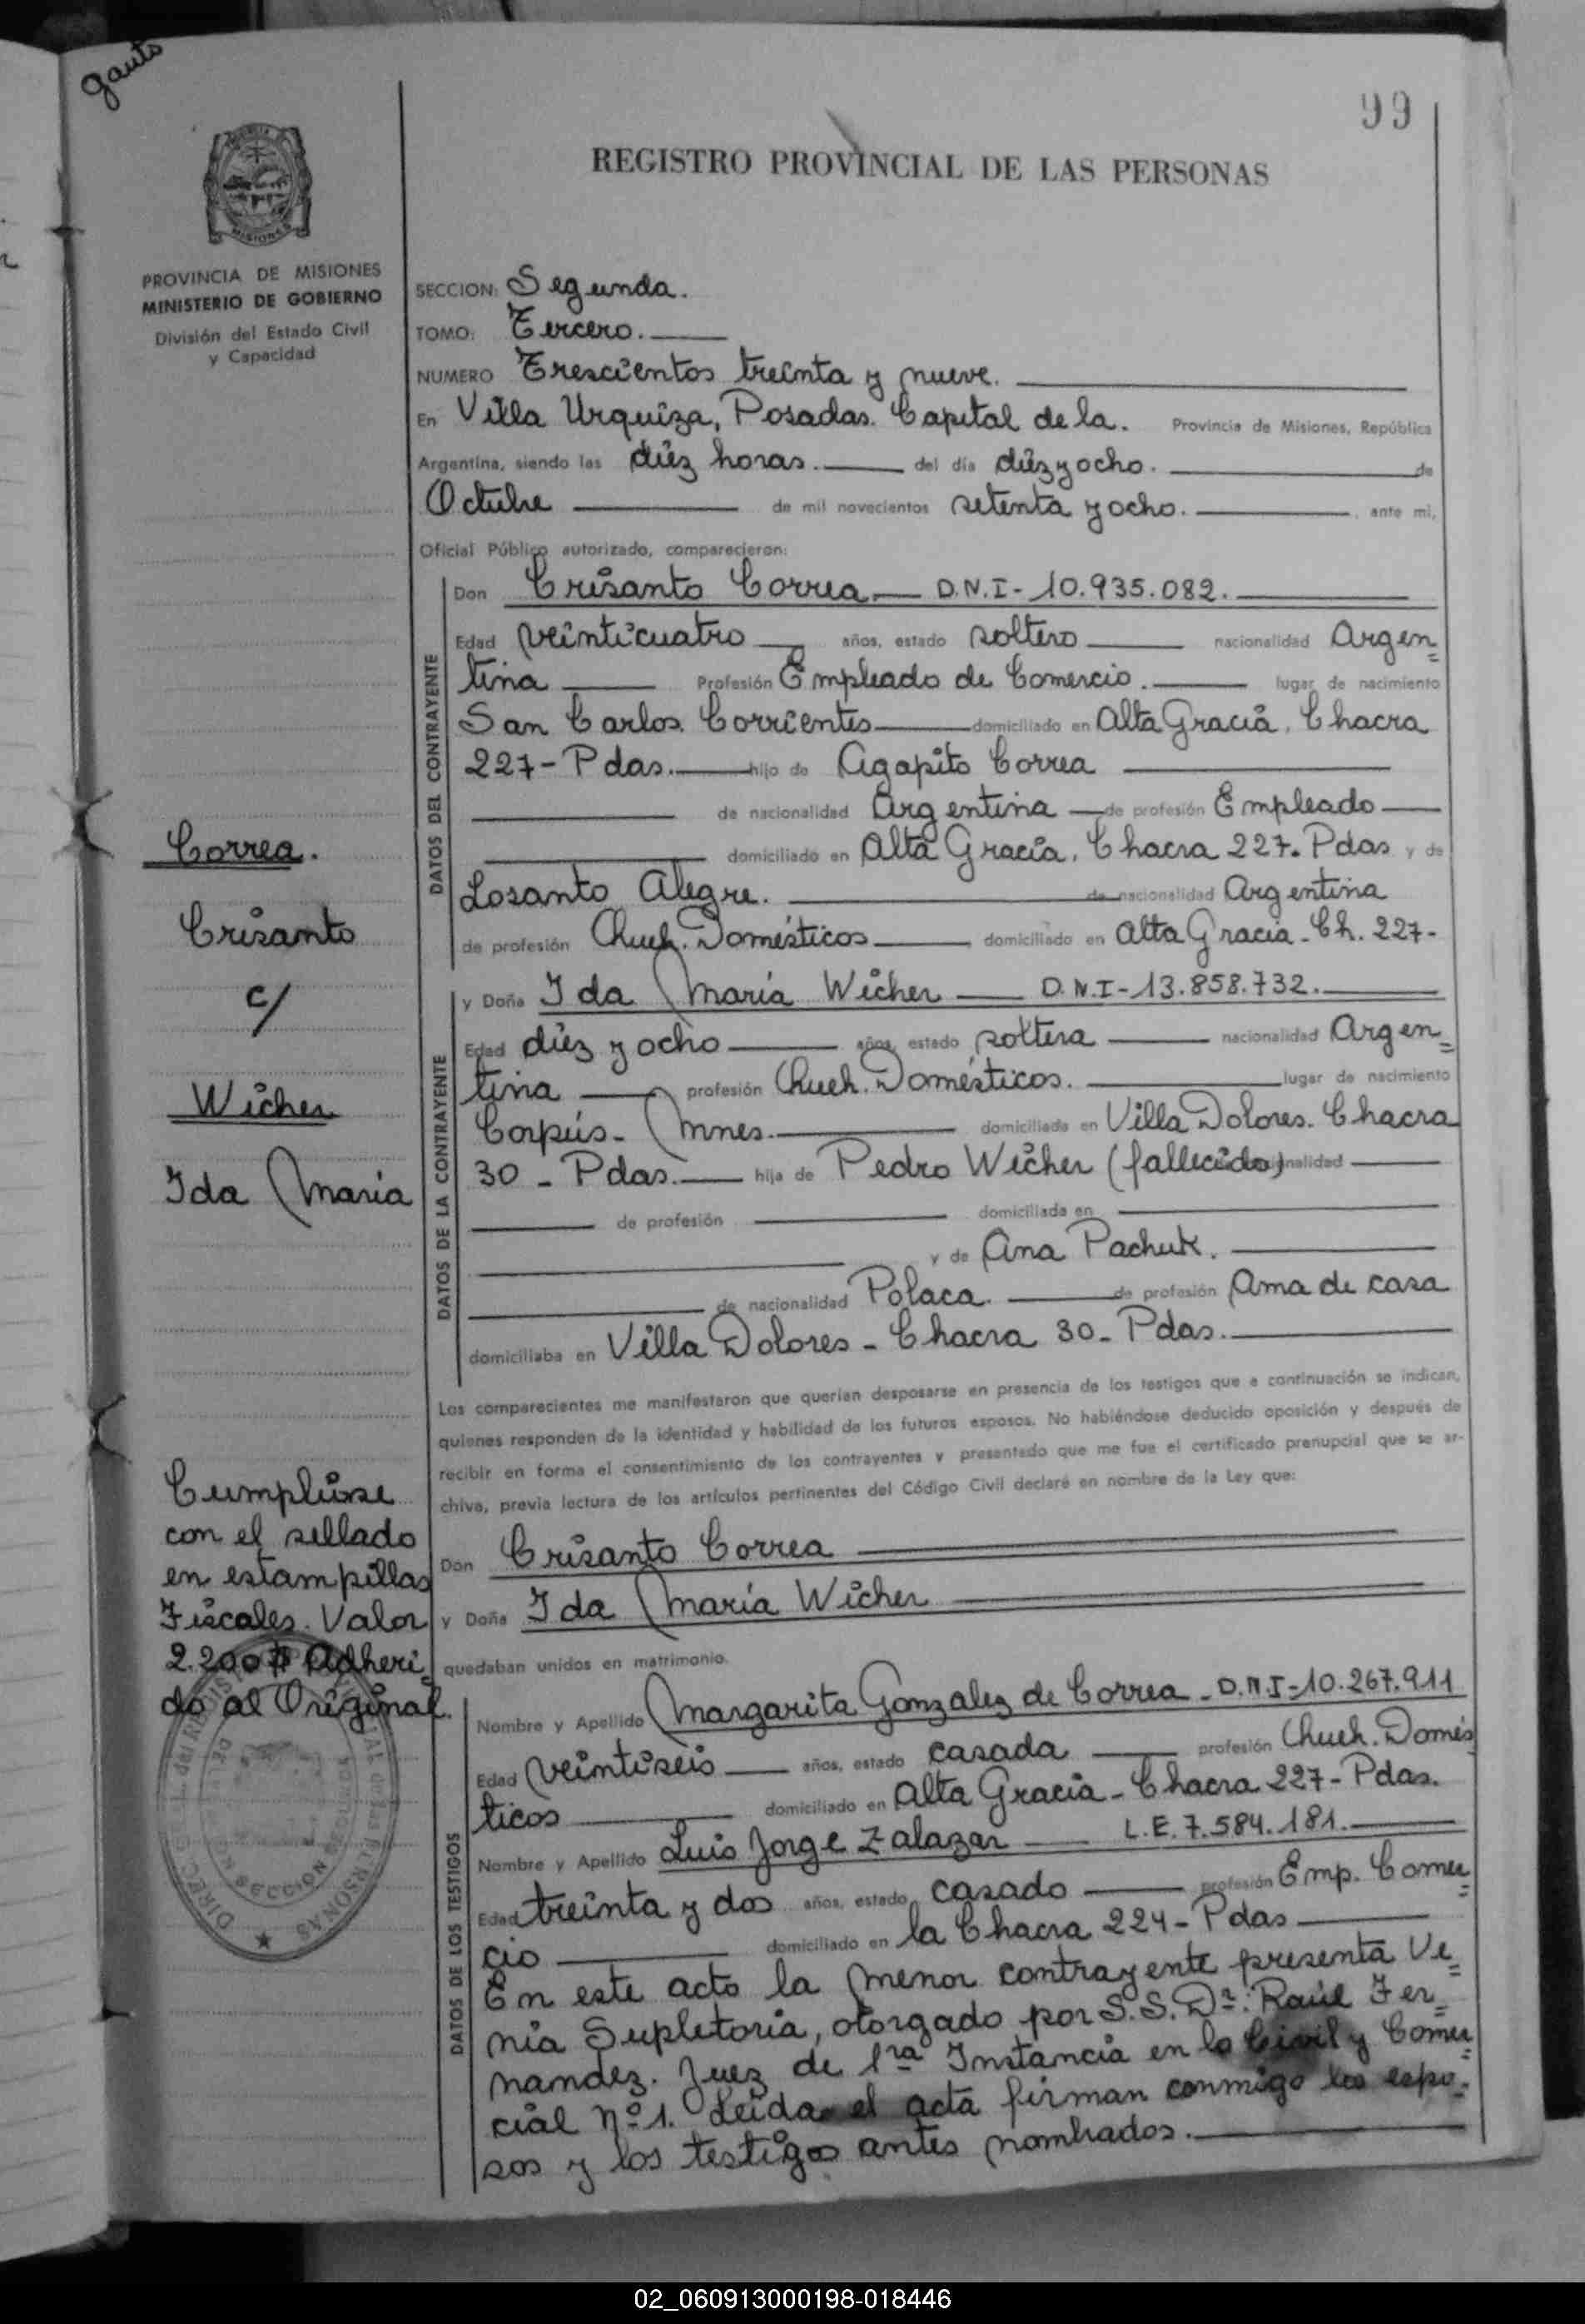 gauto
99
REGISTRO PROVINCIAL DE LAS PERSONAS
MISIONES
PROVINCIA DE MISIONES
MINISTERIO DE GOBIERNO
División del Estado Civil
y Capacidad
SECCION: Segunda.
TOMO: Tercero.
NUMERO Trescientos treinta y nueve.
En Villa Urquiza, Posadas. Capital de la. Provincia de Misiones, República
Argentina, siendo las diéz horas. del día diézyocho. de
Octubre de mil novecientos setenta y ocho. , ante mi,
Oficial Público autorizado, comparecieron:
DATOS DEL CONTRAYENTE
Don Crisanto Correa D.N.I-10.935.082.
Edad veinticuatro años, estado soltero nacionalidad Argen=
tina Profesión Empleado de Comercio. lugar de nacimiento
San Carlos. Corrientes domiciliado en Alta Gracia, Chacra
227-Pdas. hijo de Agapito Correa
de nacionalidad Argentina de profesión Empleado
domiciliado en Alta Gracia, Chacra 227. Pdas y de
Losanto Alegre. de nacionalidad Argentina
de profesión Queh. Domésticos domiciliado en Alta Gracia-Ch. 227-
DATOS DE LA CONTRAYENTE
y Doña Ida María Wicher D.N.I-13.858.732.
Edad diéz y ocho años, estado soltera nacionalidad Argen=
tina profesión Queh. Domésticos. lugar de nacimiento
Corpús-Mnes. domiciliada en Villa Dolores. Chacra
30-Pdas. hija de Pedro Wicher (fallecido) nacionalidad
de profesión domiciliada en
y de Ana Pachuk.
de nacionalidad Polaca. de profesión Ama de casa
domiciliaba en Villa Dolores-Chacra 30-Pdas.
Los comparecientes me manifestaron que querían desposarse en presencia de los testigos que a continuación se indican,
quienes responden de la identidad y habilidad de los futuros esposos. No habiéndose deducido oposición y después de
recibir en forma el consentimiento de los contrayentes y presentado que me fue el certificado prenupcial que se ar-
chiva, previa lectura de los artículos pertinentes del Código Civil declaré en nombre de la Ley que:
Don Crisanto Correa
y Doña Ida María Wicher
quedaban unidos en matrimonio.
DATOS DE LOS TESTIGOS
Nombre y Apellido Margarita Gonzalez de Correa-D.N.I-10.267.911
Edad veintiseis años, estado casada profesión Queh. Domés
ticos domiciliado en Alta Gracia-Chacra 227-Pdas.
Nombre y Apellido Luis Jorge Zalazar L.E. 7.584.181.
Edad treinta y dos años, estado casado profesión Emp. Comer=
cio domiciliado en la Chacra 224-Pdas
En este acto la menor contrayente presenta Ve=
nia Supletoria, otorgado por S.S. Dr: Raúl Fer=
nandez. Juez de 1ra Instancia en lo Civil y Comer=
cial Nº1. Leida el acta firman conmigo los espo=
sos y los testigos antes nombrados.
Correa.
Crisanto
c/
Wicher
Ida María
Cumplióse
con el sellado
en estampillas
Fiscales. Valor
2.200$ Adheri=
do al Original.
SECCION
PERSONAS
02_060913000198-018446